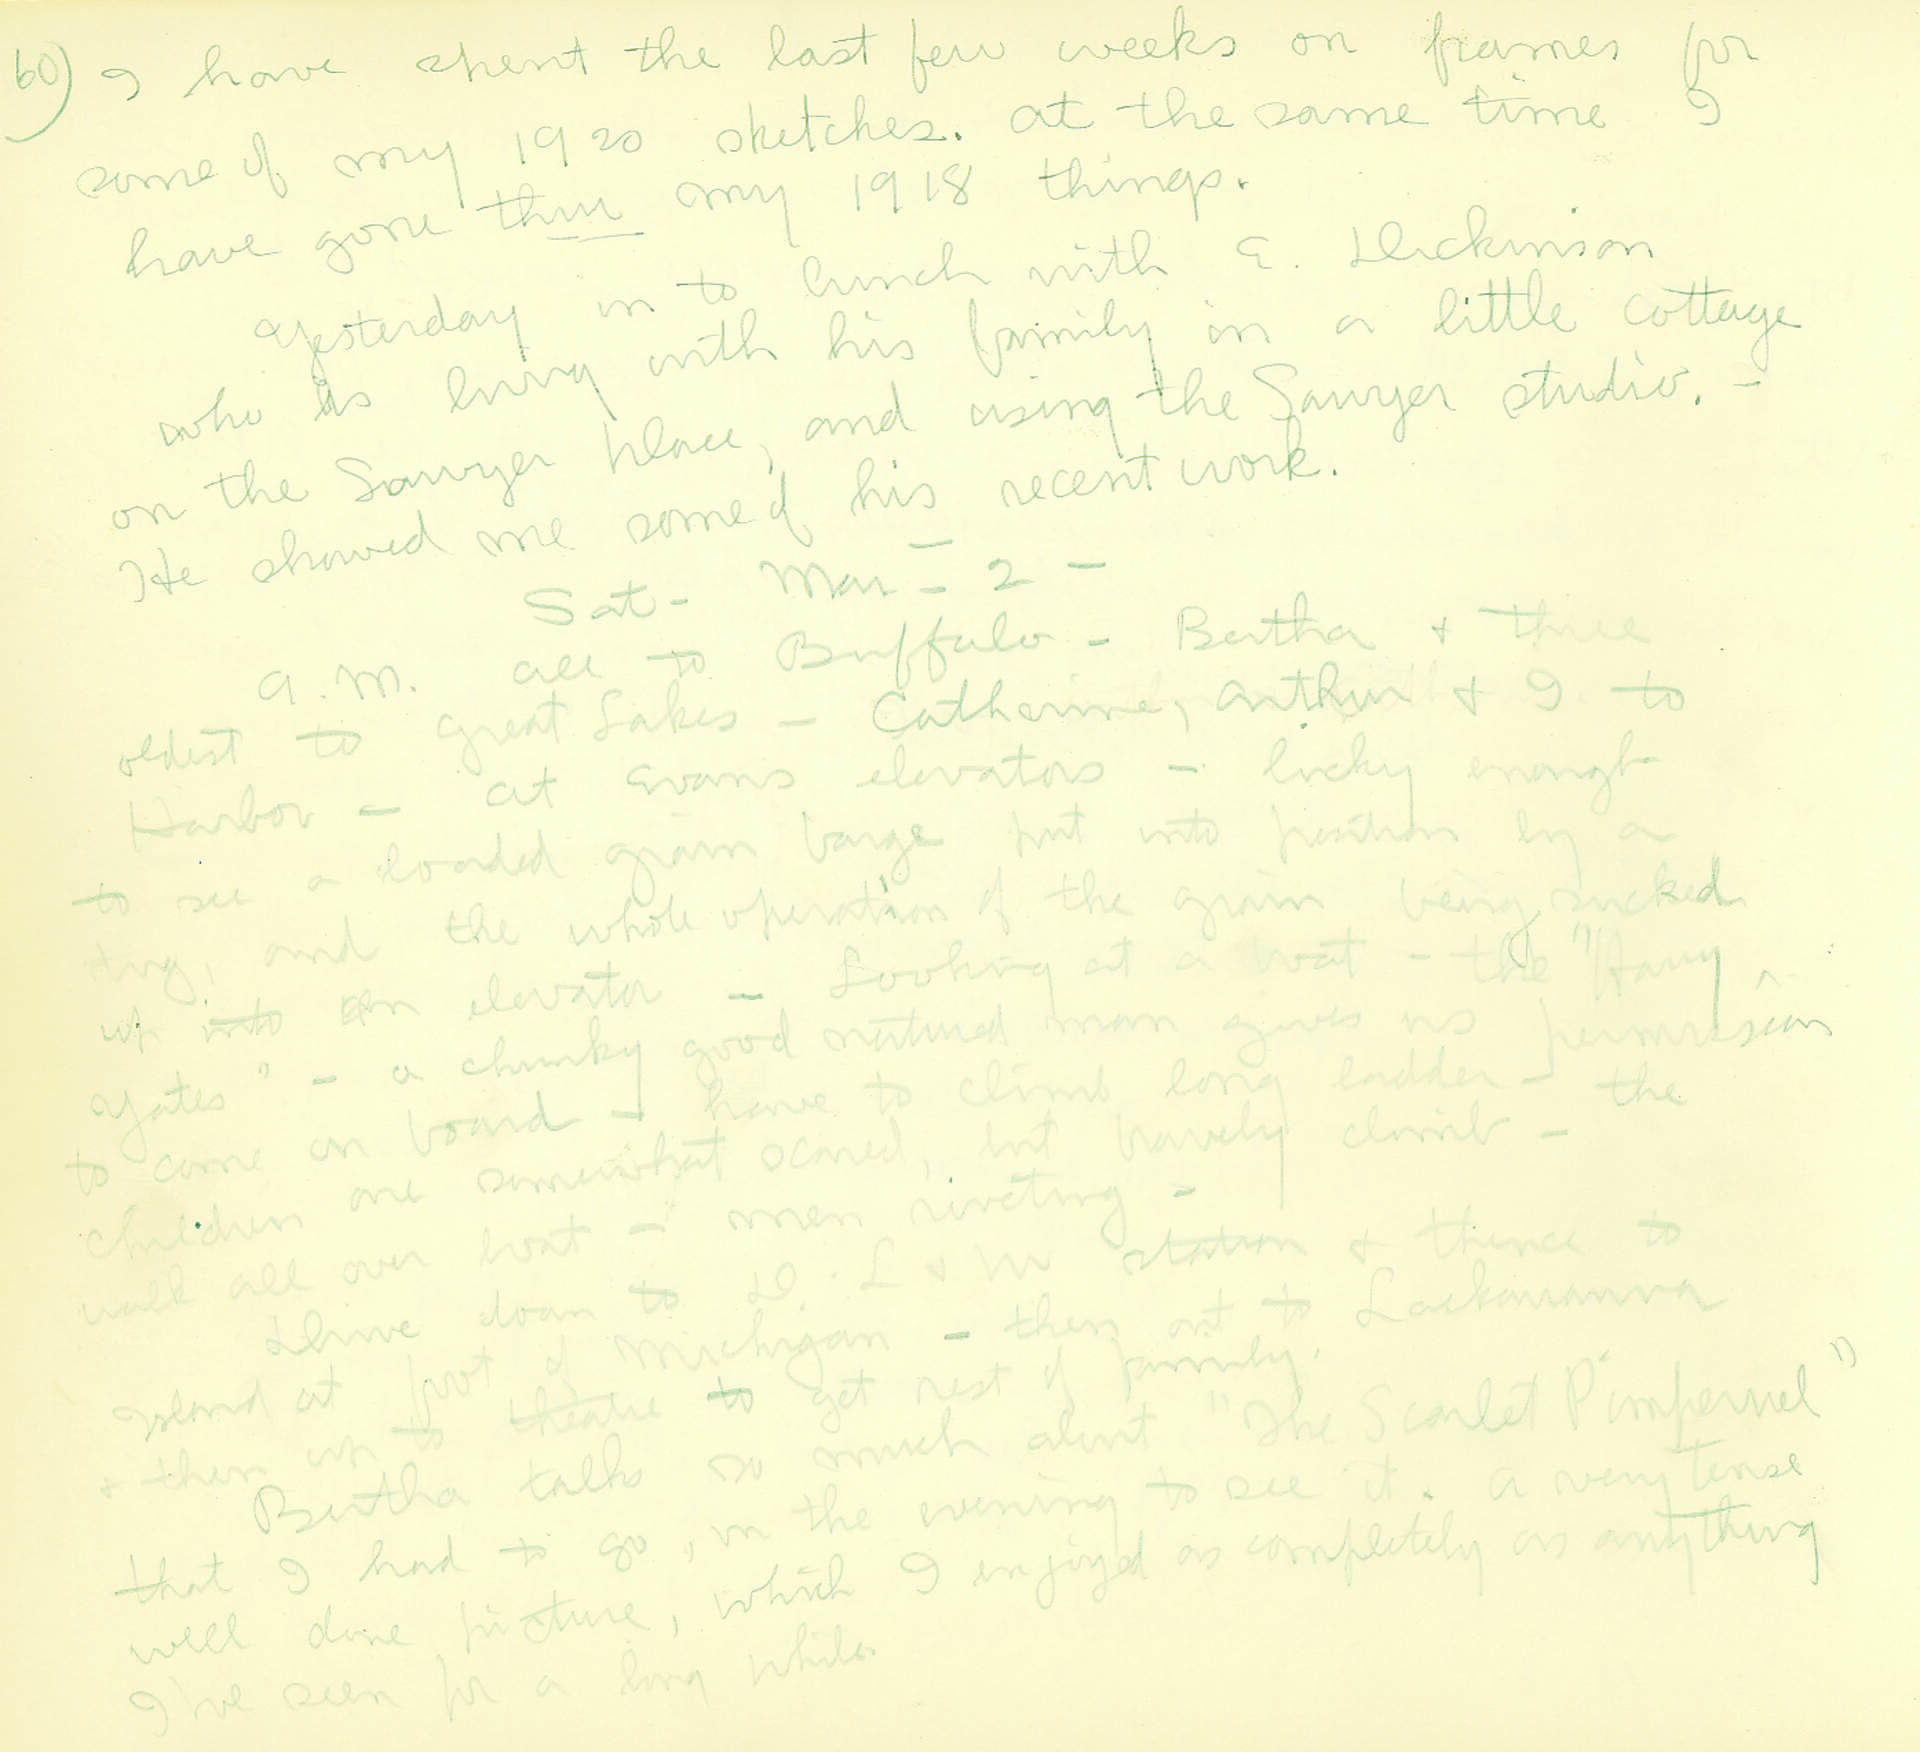 60) I have spent the last few weeks on frames for
some of my 1920 sketches. At the same time I
have gone thru my 1918 things.
Yesterday in to lunch with E. Dickinson
who is living with his family in a little cottage
on the Sawyer place, and using the Sawyer studio. –
He showed me some of his recent work.
Sat – Mar – 2 –
A.M. all to Buffalo – Bertha & three
oldest to Great Lakes – Catherine, Arthur & I to
Harbor – at Evans elevators – lucky enough
to see a loaded grain barge put into position by a
tug, and the whole operation of the grain being sucked
up into an elevator – Looking at a boat – the "Harry
Yates" – a chunky good natured man gives us permission
to come on board – have to climb long ladder – the
children are somewhat scared, but bravely climb –
walk all over boat – men riveting –
Drive down to D. L & W station & thence to
Island at foot of Michigan – then out to Lackawanna
& then up to theatre to get rest of family.
Bertha talks so much about "The Scarlet Pimpernel"
that I had to go, in the evening to see it. A very tense
well done picture, which I enjoyed as completely as anything
I've seen for a long while.